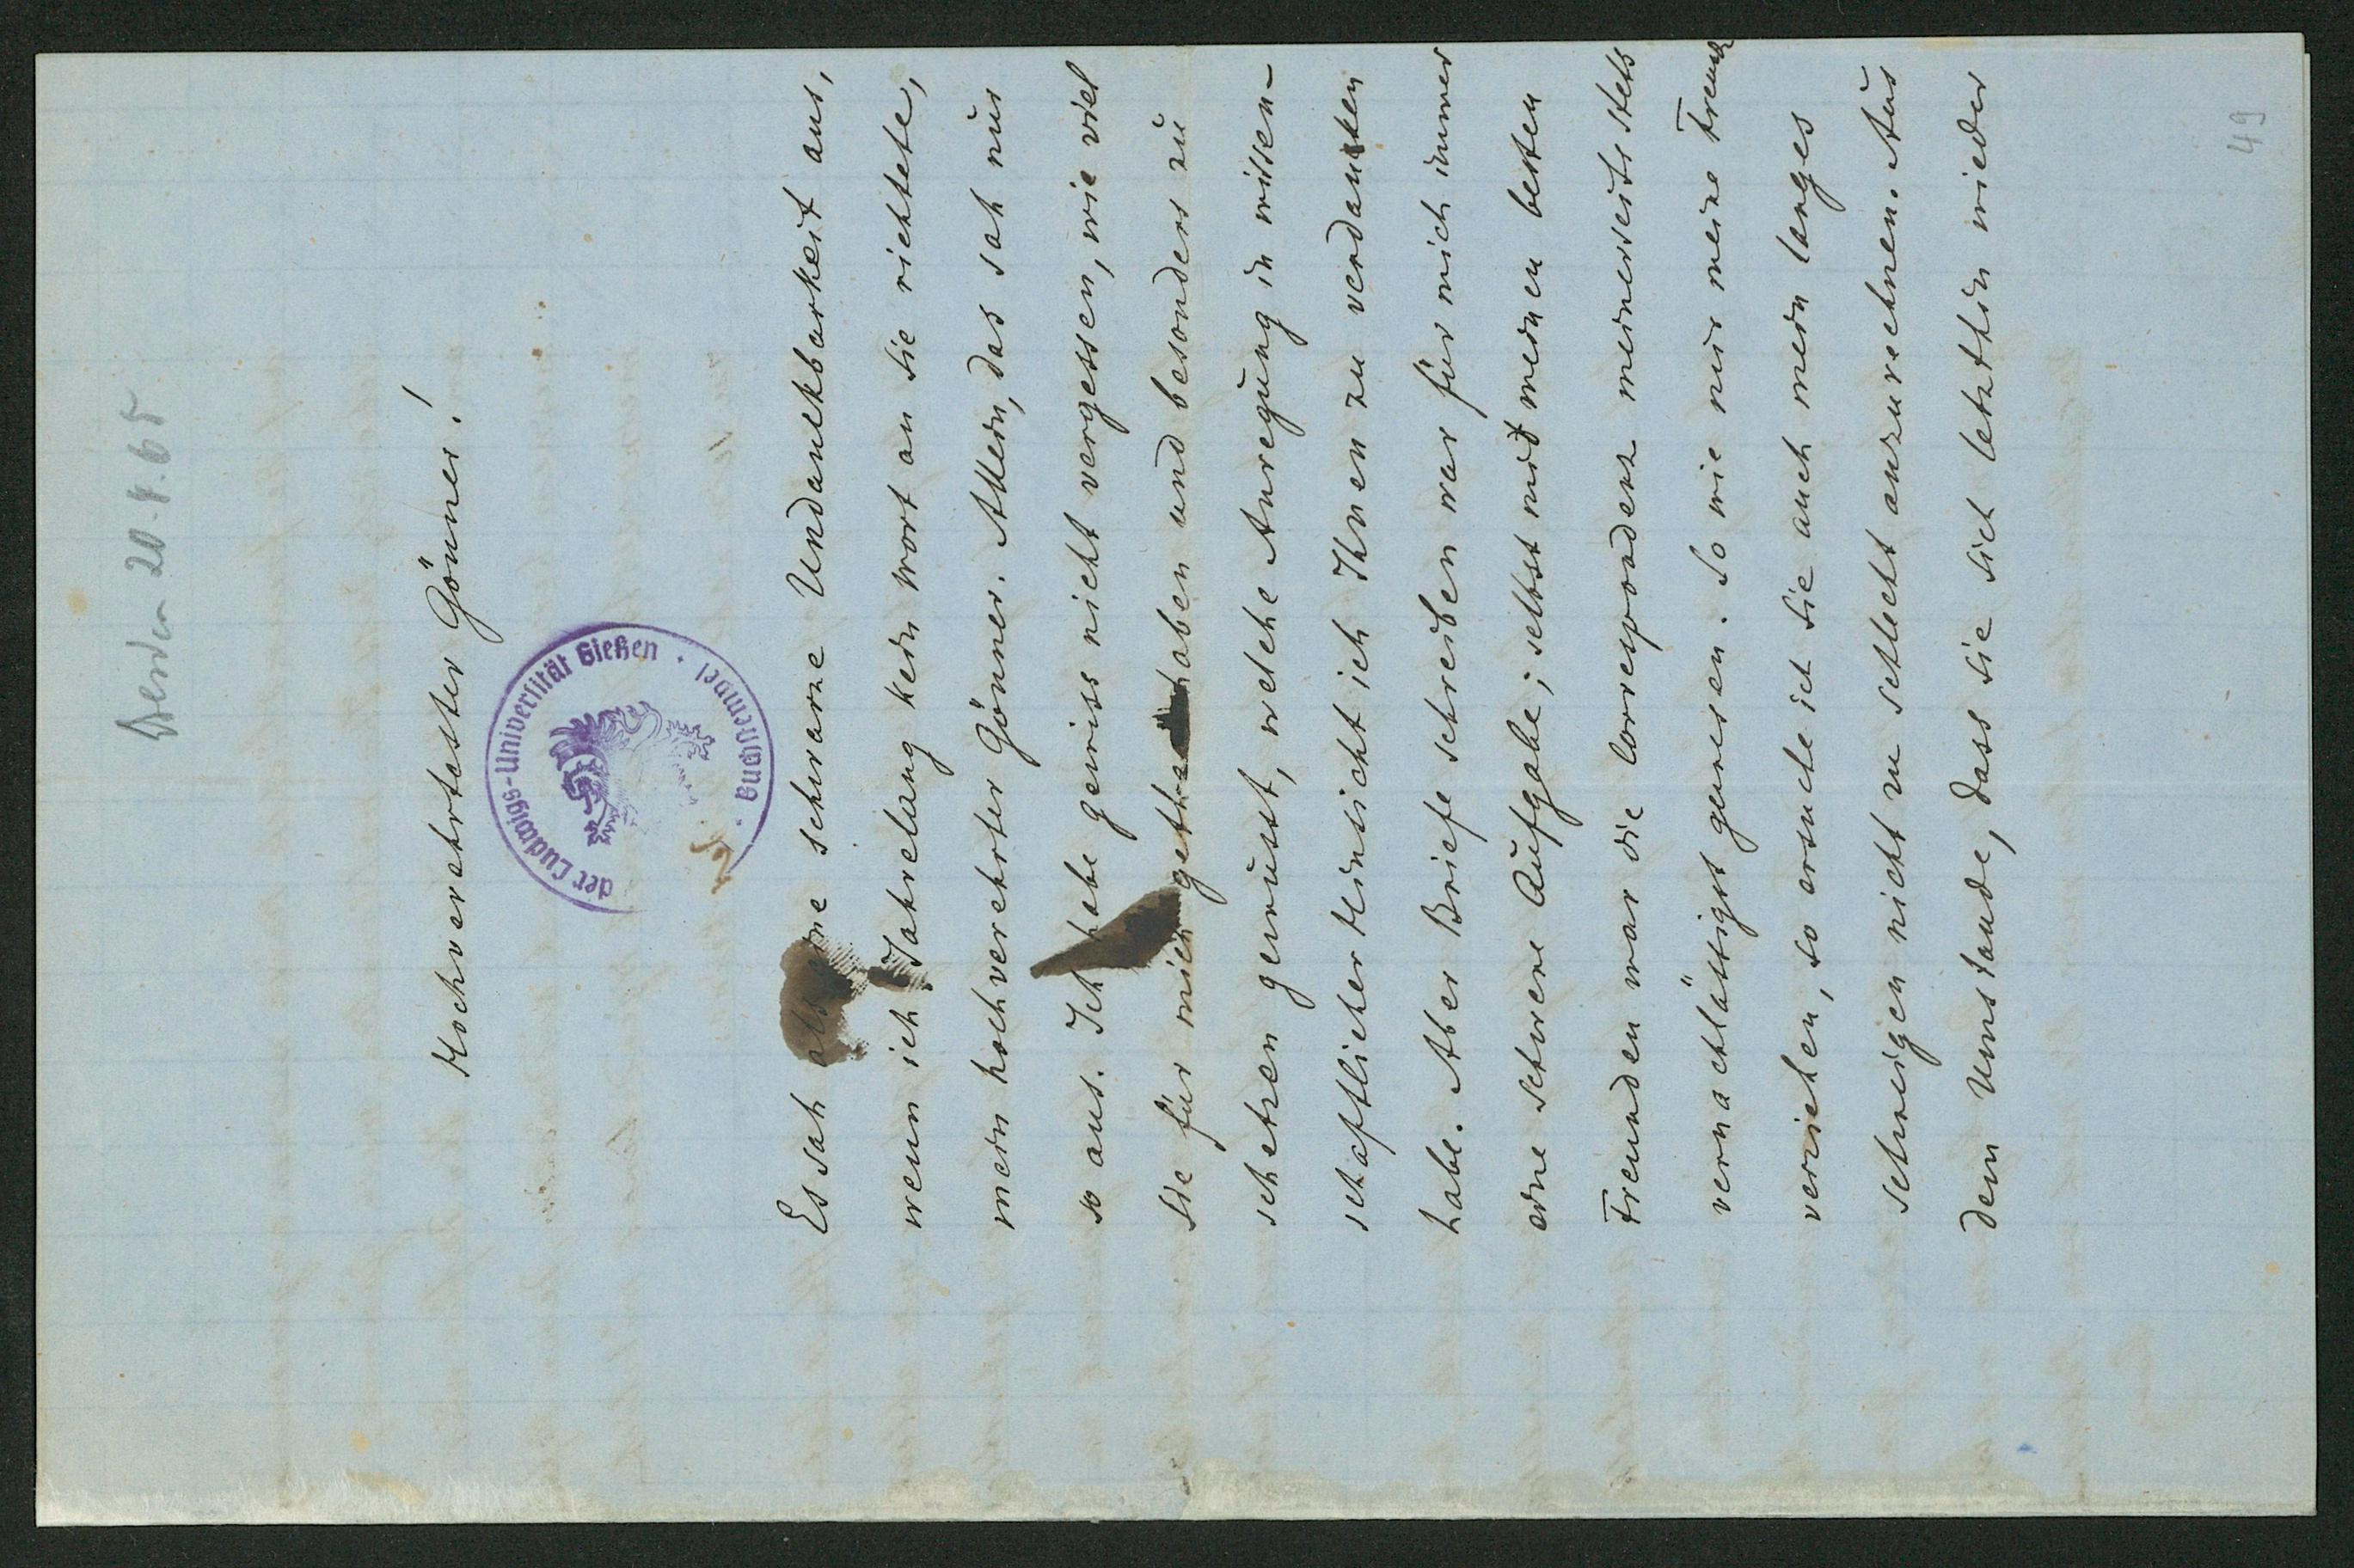 20.4.65
Hochverehrtester Gönner!
der Ludwigs-Universität Gießen · Buchstempel ·
Es sah als eine schwarze Undankbarkeit aus,
wenn ich Jahrelang kein Wort an Sie richtete,
mein hochverehrter Gönner. Allein, das sah nur
so aus. Ich habe gewiss nicht vergessen, wie viel
Sie für mich gethan haben und besonders zu
schetzen gewusst, welche Anregung in wissen-
schaftlicher Hinsicht ich Ihnen zu verdanken
habe. Aber Briefe schreiben war für mich immer
eine schwere Aufgabe; selbst mit meinen besten
Freunden war die Correspondenz meinerseits stets
vernachlässigt gewesen. So wie mir meine Freunde
verziehen, so ersuche ich Sie auch mein langes
Schweigen nicht zu schlecht anzurechnen. Aus
dem Umstande, dass Sie sich letzthin wieder
49